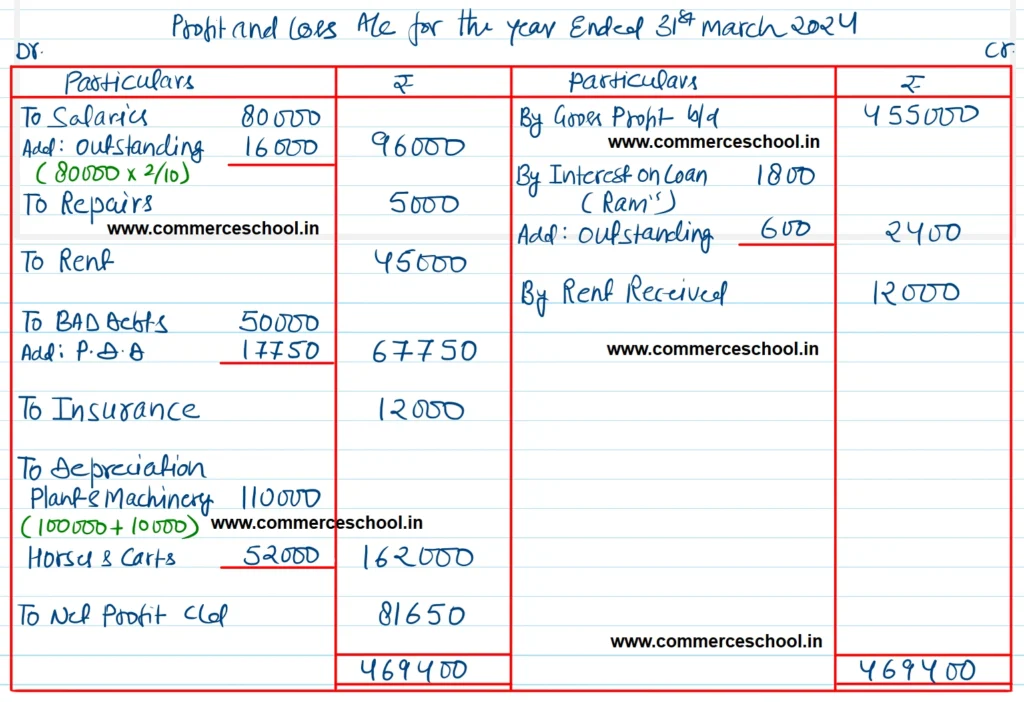 Profit and Loss A/c for the year Ended 31st March 2024
Dr. Cr.
Particulars ₹ Particulars ₹
To Salaries 80000 By Gross Profit b/d 455000
Add: Outstanding 16000 96000 www.commerceschool.in
(80000 x 2/10) By Interest on Loan 1800
To Repairs 5000 (Ram's)
www.commerceschool.in Add: Outstanding 600 2400
To Rent 45000
By Rent Received 12000
To BAD Debts 50000
Add: P.D.D 17750 67750 www.commerceschool.in
To Insurance 12000
To Depreciation
Plant & Machinery 110000
(100000 + 10000) www.commerceschool.in
Horses & Carts 52000 162000
To Net Profit c/d 81650
www.commerceschool.in
469400 469400